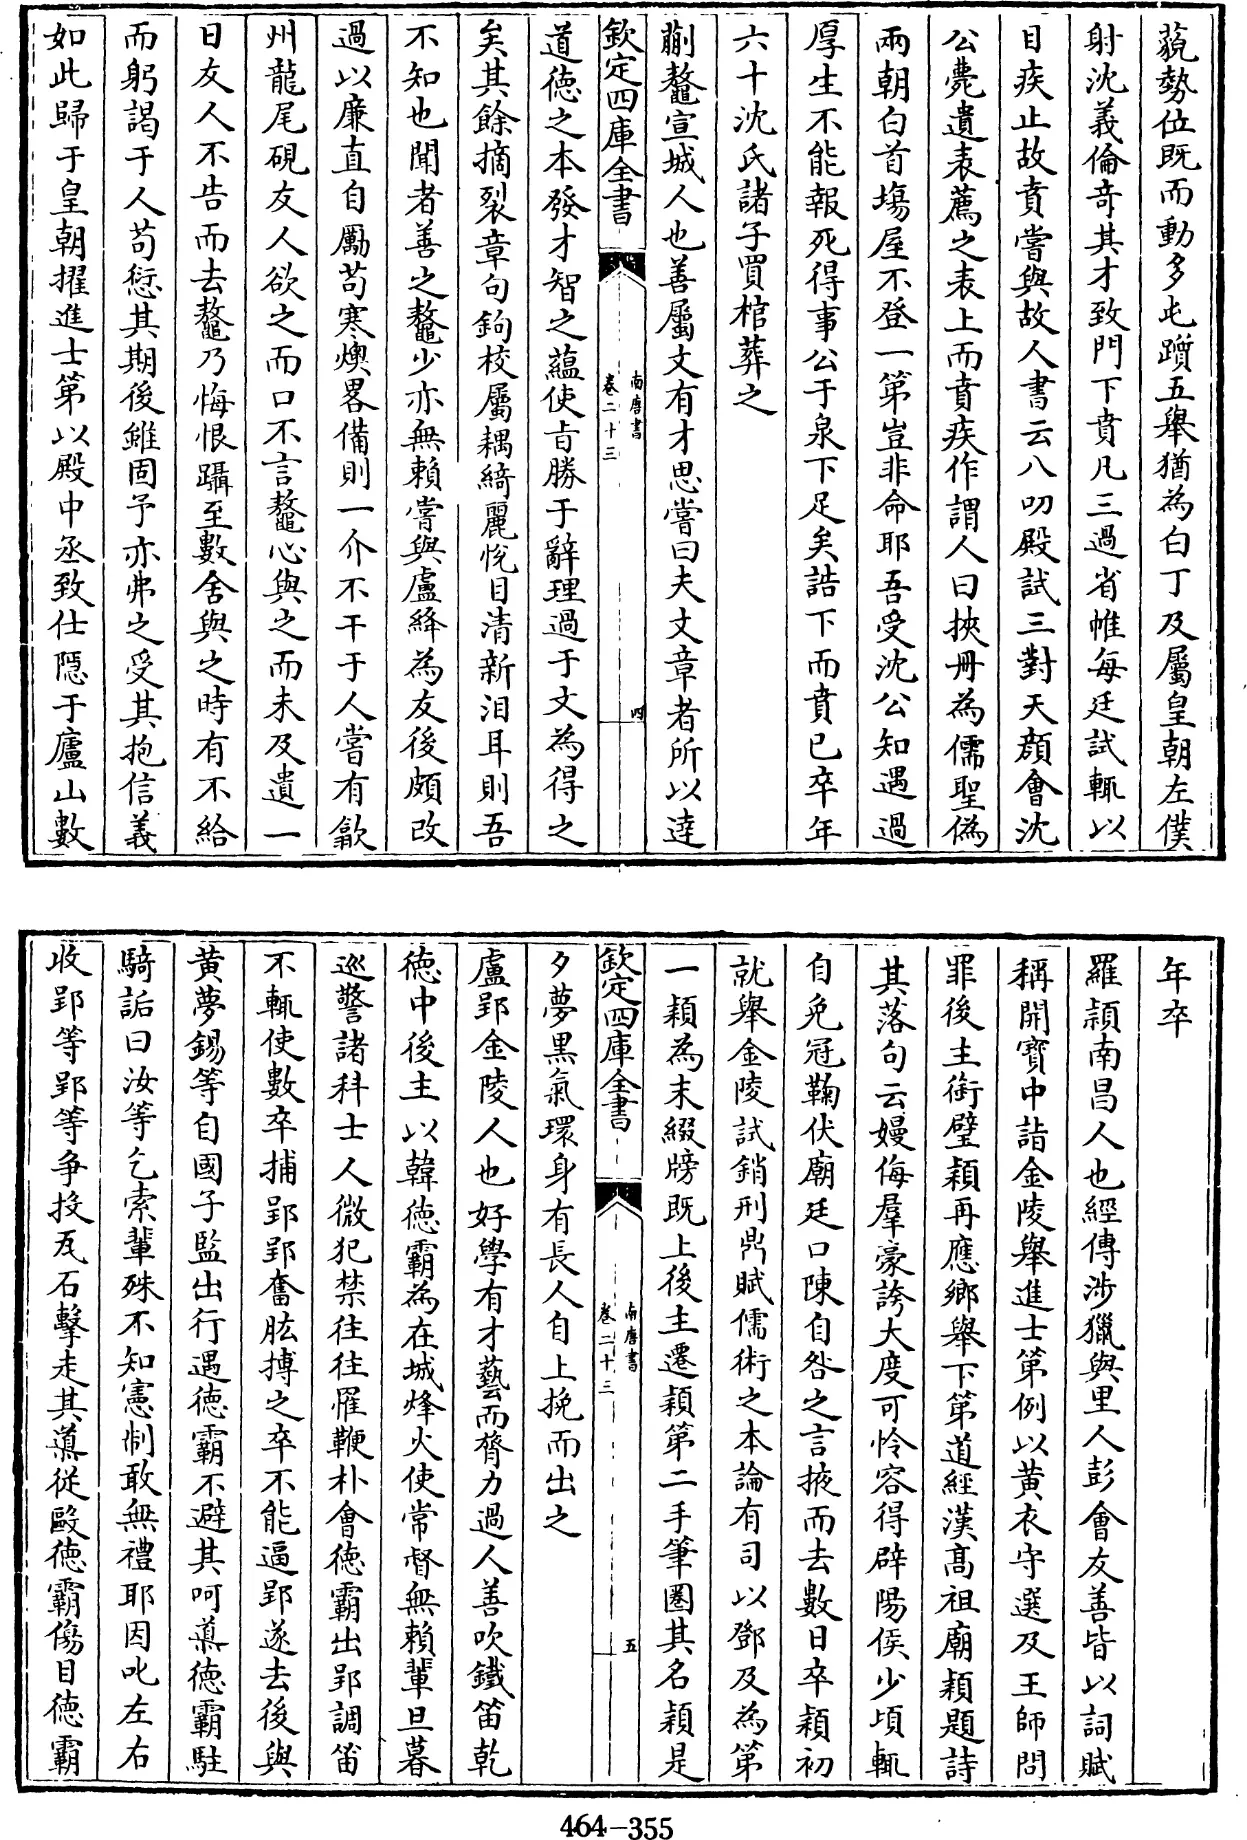 藐勢位既而動多屯躓五舉猶為白丁及屬皇朝左僕
射沈義倫竒其才致門下賁凡三過省帷每廷試輒以
目疾止故賁嘗與故人書云八叨殿試三對天顔㑹沈
公薨遺表薦之表上而賁疾作謂人曰挾冊為儒聖偽
兩朝白首塲屋不登一第豈非命耶吾受沈公知遇過
厚生不能報死得事公于泉下足矣誥下而賁已卒年
六十沈氏諸子買棺葬之
蒯鼇宣城人也善屬文有才思嘗曰夫文章者所以達
欽定四庫全書
南唐書
卷二十三
四
道徳之本發才智之藴使旨勝于辭理過于文為得之
矣其餘摘裂章句鉤校屬耦綺麗悅目清新洎耳則吾
不知也聞者善之鼇少亦無賴嘗與盧絳為友後頗改
過以廉直自勵苟寒燠畧備則一介不干于人嘗有歙
州龍尾硯友人欲之而口不言鼇心與之而未及遺一
日友人不告而去鼇乃悔恨躡至數舍與之時有不給
而躬謁于人苟愆其期後雖固予亦弗之受其抱信義
如此歸于皇朝擢進士第以殿中丞致仕隠于廬山數
年卒
羅頴南昌人也經傳涉獵與里人彭㑹友善皆以詞賦
稱開寳中詣金陵舉進士第例以黄衣守選及王師問
罪後主銜璧頴再應鄉舉下第道經漢髙祖廟頴題詩
其落句云嫚侮羣豪誇大度可怜容得辟陽侯少頃輒
自免冠鞠伏廟廷口陳自咎之言掖而去數日卒頴初
就舉金陵試銷刑鼎賦儒術之本論有司以鄧及為第
一頴為末綴牓既上後主遷頴第二手筆圏其名頴是
欽定四庫全書
南唐書
卷二十三
五
夕夢黒氣環身有長人自上挽而出之
盧郢金陵人也好學有才藝而膂力過人善吹鐵笛乾
徳中後主以韓徳霸為在城烽火使常督無賴輩旦暮
巡警諸科士人微犯禁往往罹鞭朴㑹徳霸出郢調笛
不輒使數卒捕郢郢奮肱搏之卒不能逼郢遂去後與
黄夢錫等自國子監出行遇徳霸不避其呵導徳霸駐
騎詬曰汝等乞索輩殊不知憲制敢無禮耶因叱左右
收郢等郢等争投瓦石擊走其導從毆徳霸傷目徳霸
464-355